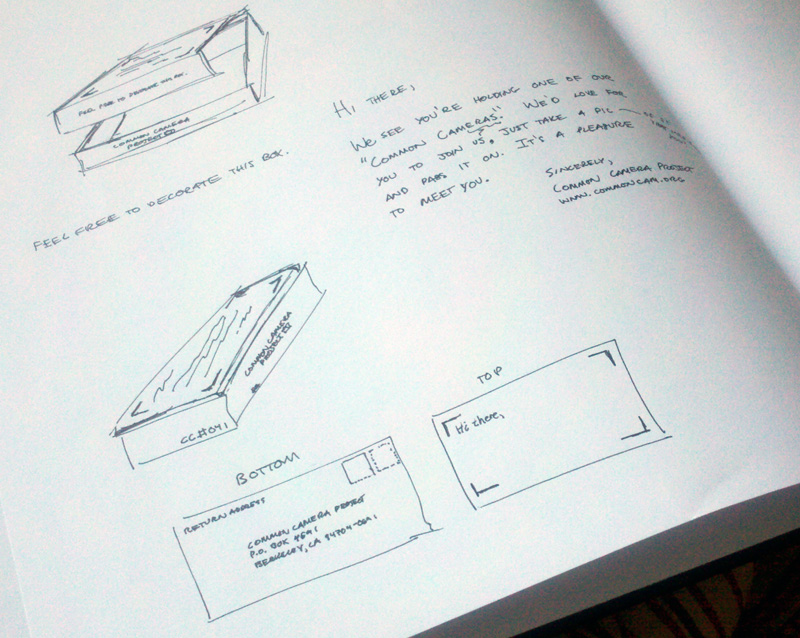 FEEL FREE TO DECORATE THIS BOX.
COMMON CAMERA
PROJECT
FEEL FREE TO DECORATE THIS BOX.
HI THERE,
WE SEE YOU'RE HOLDING ONE OF OUR
"COMMON CAMERAS." WE'D LOVE FOR
YOU TO JOIN US. JUST TAKE A PIC
AND PASS IT ON. IT'S A PLEASURE
TO MEET YOU.
SINCERELY,
COMMON CAMERA PROJECT
WWW.COMMONCAM.ORG
COMMON CAMERA
PROJECT
CC#041
TOP
Hi there,
BOTTOM
RETURN ADDRESS
COMMON CAMERA PROJECT
P.O. BOX 4641
BERKELEY, CA 94704-0641